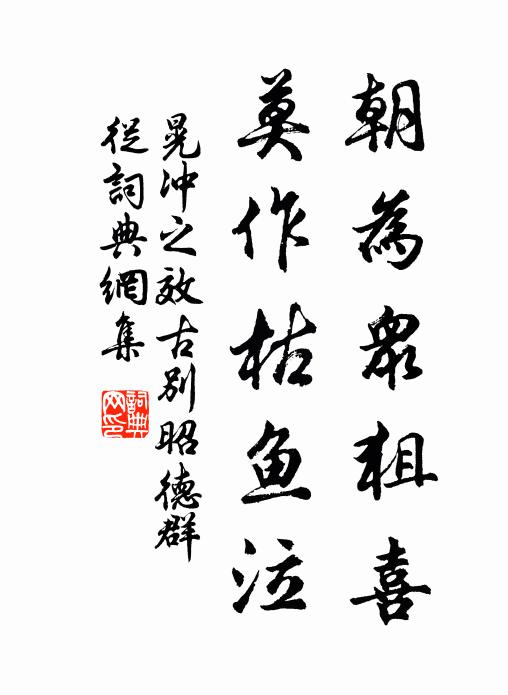 朝為衆狙喜
莫作枯魚泣
晁沖之效古別昭德群
從詞典網集
詞典网印